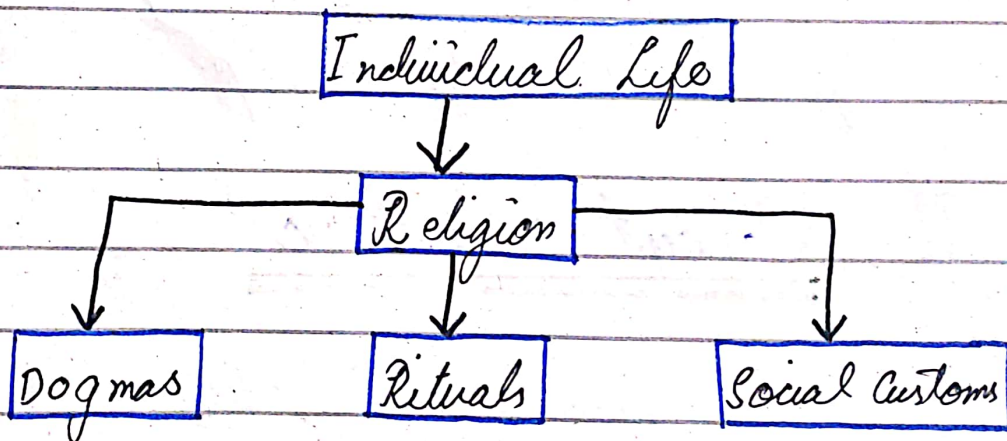 Individual Life
Religion
Dogmas
Rituals
Social Customs